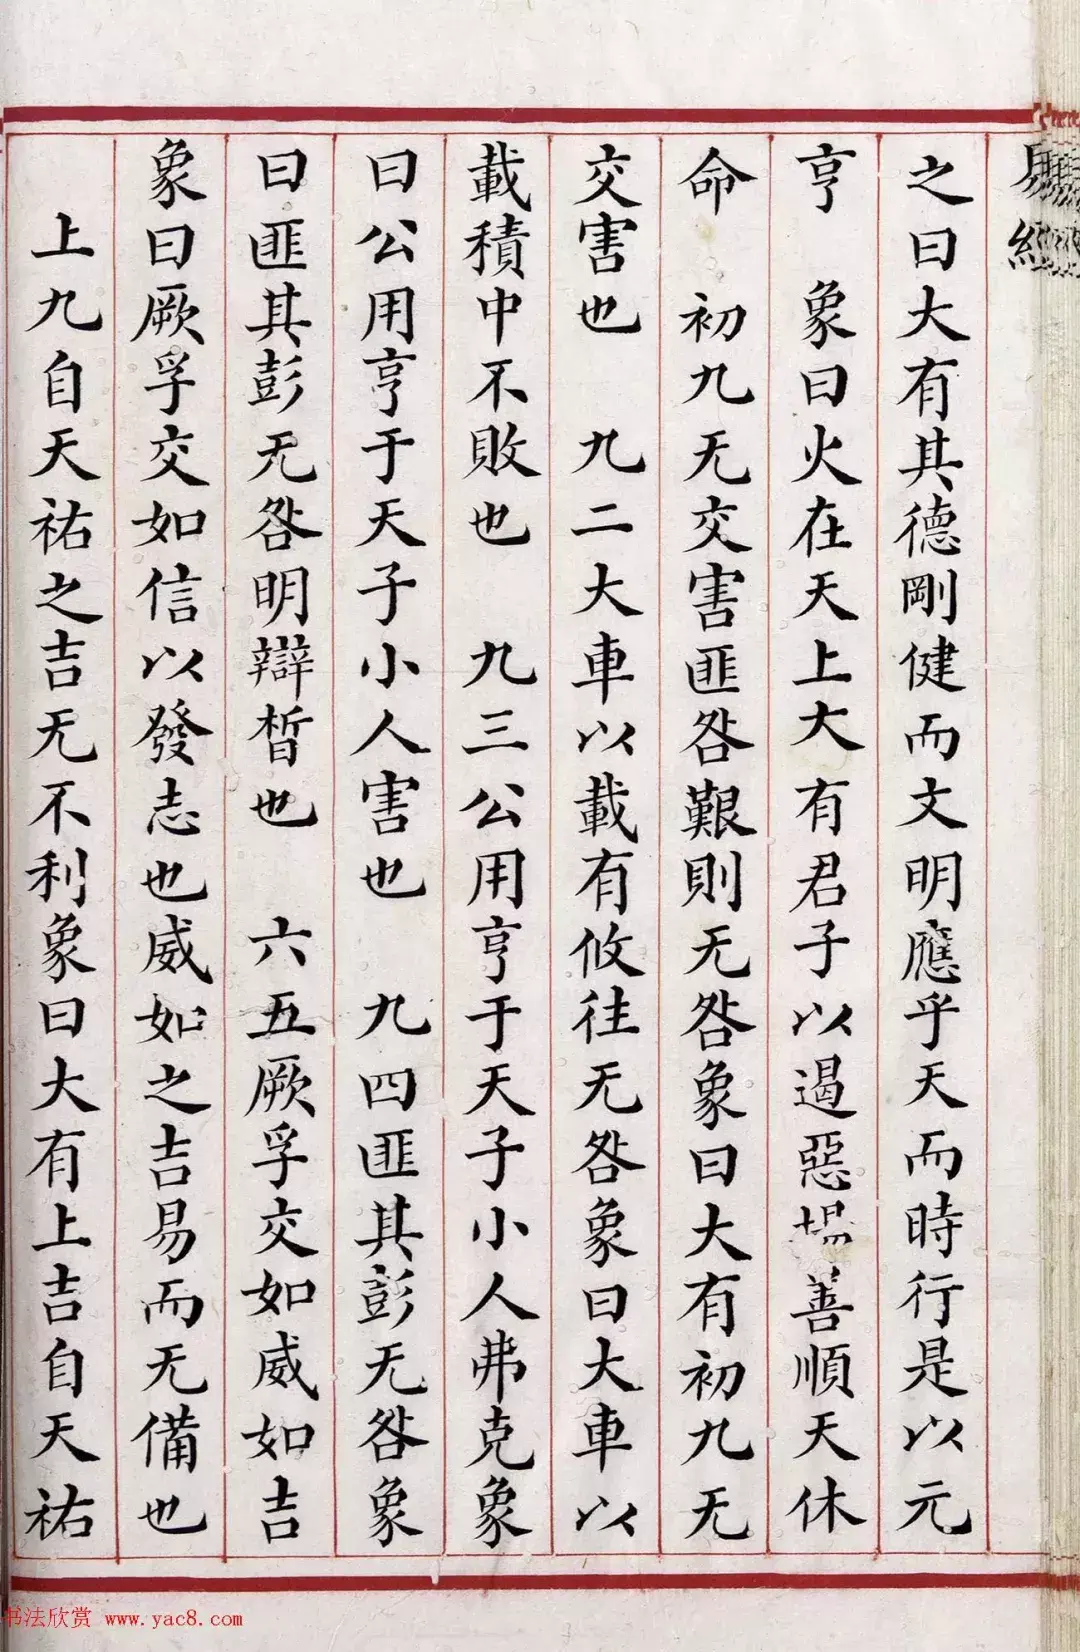 之曰大有其德剛健而文明應乎天而時行是以元
亨　象曰火在天上大有君子以遏惡善順天休
命　初九无交害匪咎艱則无咎象曰大有初九无
交害也　九二大車以載有攸往无咎象曰大車以
載積中不敗也　九三公用亨于天子小人弗克象
曰公用亨于天子小人害也　九四匪其彭无咎象
曰匪其彭无咎明辯晳也　六五厥孚交如威如吉
象曰厥孚交如信以發志也威如之吉易而无備也
上九自天祐之吉无不利象曰大有上吉自天祐
书法欣赏 www.yac8.com